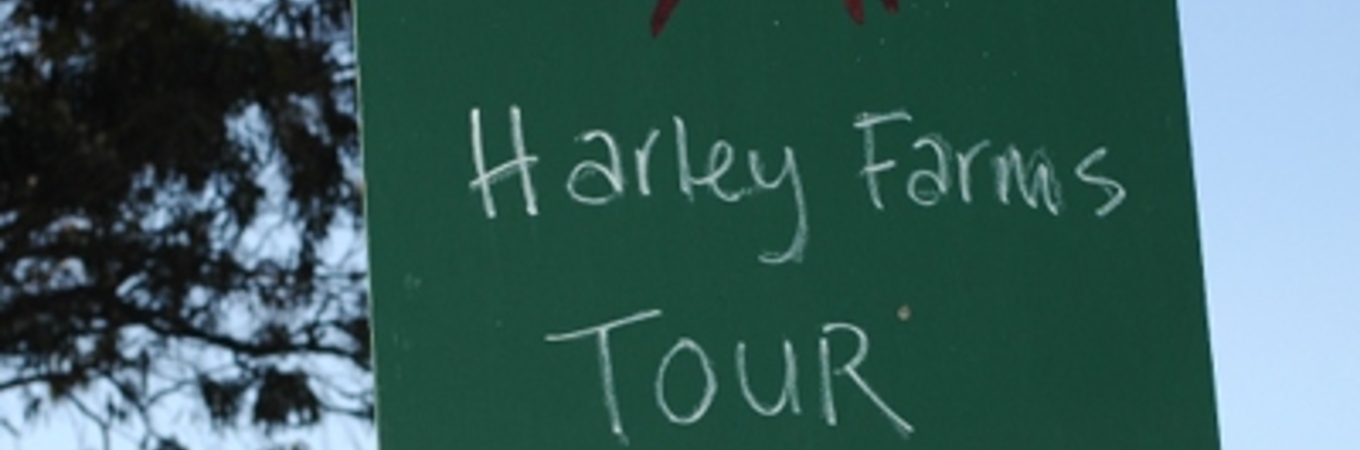 Harley Farms
TOUR